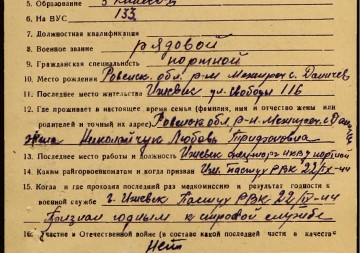 5. Образование 5 классов
6. На ВУС 133
7. Должностная квалификация
8. Военное звание рядовой
9. Гражданская специальность портной
10. Место рождения Ровенск. обл. р-н Межиреч. с. Даничев
11. Последнее место жительства Ижевск ул. Свободы 116
12. Где проживает в настоящее время семья (фамилия, имя и отчество жены или
родителей и точный их адрес) Ровенск. обл. р-н Межиреч. с.
жена Николайчук Любовь
13. Последнее место работы и должность Ижевск НКВД портной
14. Каким райгорвоенкоматом и когда призван РВК 22/IX-44
15. Когда и где проходил последний раз медкомиссию и результат годности к
военной службе г. Ижевск РВК 22/IX-44
Признан годным к строевой службе
16. Участие в Отечественной войне (в составе какой последней части и в качестве
Нет